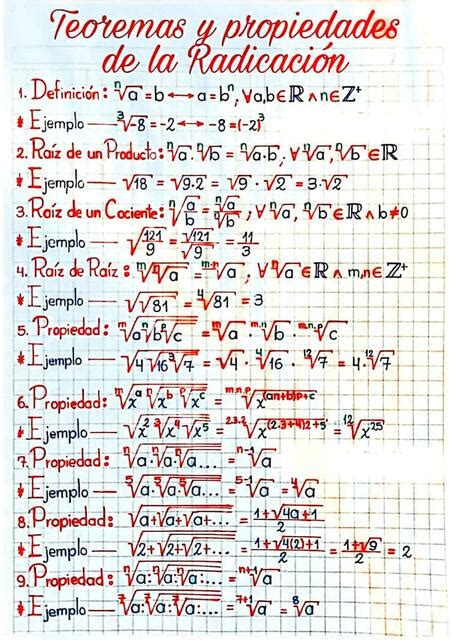 Teoremas y propiedades
de la Radicación
1. Definición: ⁿ√a = b ↔ a = bⁿ, ∀a,b∈ℝ ∧ n∈ℤ⁺
* Ejemplo — ³√-8 = -2 ↔ -8 = (-2)³
2. Raíz de un Producto: ⁿ√a . ⁿ√b = ⁿ√(a.b), ∀ ⁿ√a, ⁿ√b ∈ℝ
* Ejemplo — √18 = √(9.2) = √9 . √2 = 3.√2
3. Raíz de un Cociente: ⁿ√(a/b) = ⁿ√a/ⁿ√b, ∀ ⁿ√a, ⁿ√b ∈ℝ ∧ b≠0
* Ejemplo — √(121/9) = √121/√9 = 11/3
4. Raíz de Raíz: ᵐ√(ⁿ√a) = ᵐ·ⁿ√a, ∀ ⁿ√a ∈ℝ ∧ m,n∈ℤ⁺
* Ejemplo — √(√81) = ⁴√81 = 3
5. Propiedad: ᵐ√(a ⁿ√(b ᵖ√c)) = ᵐ√a . ᵐ·ⁿ√b . ᵐ·ⁿ·ᵖ√c
* Ejemplo — √(4 √(16 ³√7)) = √4 . ⁴√16 . ¹²√7 = 4.¹²√7
6. Propiedad: ᵐ√(xᵃ ⁿ√(xᵇ ᵖ√xᶜ)) = ᵐ·ⁿ·ᵖ√(x^((an+b)p+c))
* Ejemplo — √(x² ³√(x⁴ √x⁵)) = ²·³·²√(x^((2.3+4)2+5)) = ¹²√x²⁵
7. Propiedad: ⁿ√(a.ⁿ√(a.ⁿ√(a...))) = ⁿ⁻¹√a
* Ejemplo — ⁵√(a.⁵√(a.⁵√(a...))) = ⁵⁻¹√a = ⁴√a
8. Propiedad: √(a+√(a+√(a+...))) = (1+√(4a+1))/2
* Ejemplo — √(2+√(2+√(2+...))) = (1+√(4(2)+1))/2 = (1+√9)/2 = 2
9. Propiedad: ⁿ√(a:ⁿ√(a:ⁿ√(a:...))) = ⁿ⁺¹√a
* Ejemplo — ⁷√(a:⁷√(a:⁷√(a:...))) = ⁷⁺¹√a = ⁸√a